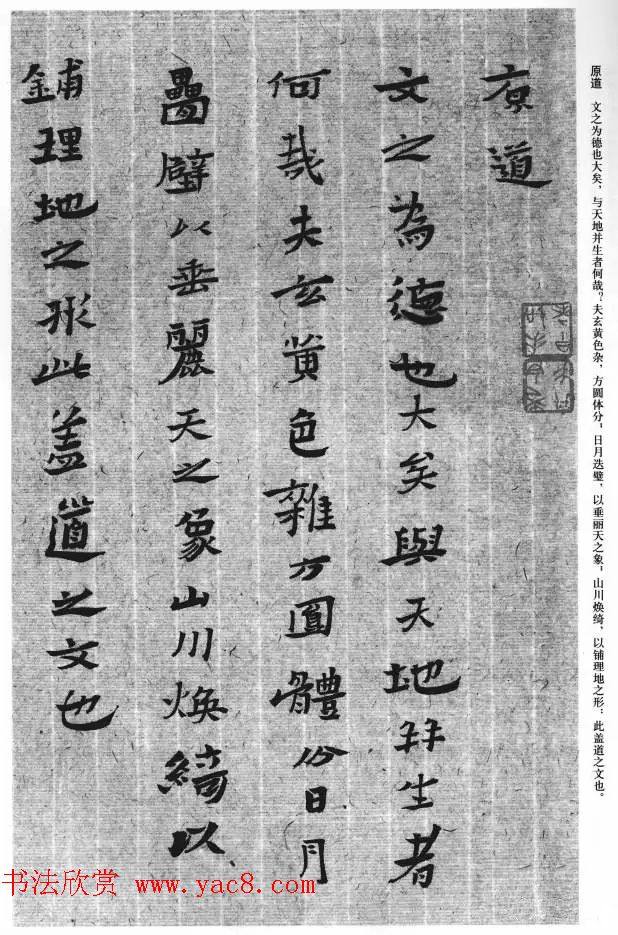 原道　文之为德也大矣，与天地并生者何哉？夫玄黄色杂，方圆体分，日月迭璧，以垂丽天之象；山川焕绮，以铺理地之形：此盖道之文也。
原道
文之為德也大矣與天地并生者
何哉夫玄黄色雜方圓體分日月
疊璧以垂麗天之象山川焕綺以
鋪理地之形此盖道之文也
书法欣赏 www.yac8.com